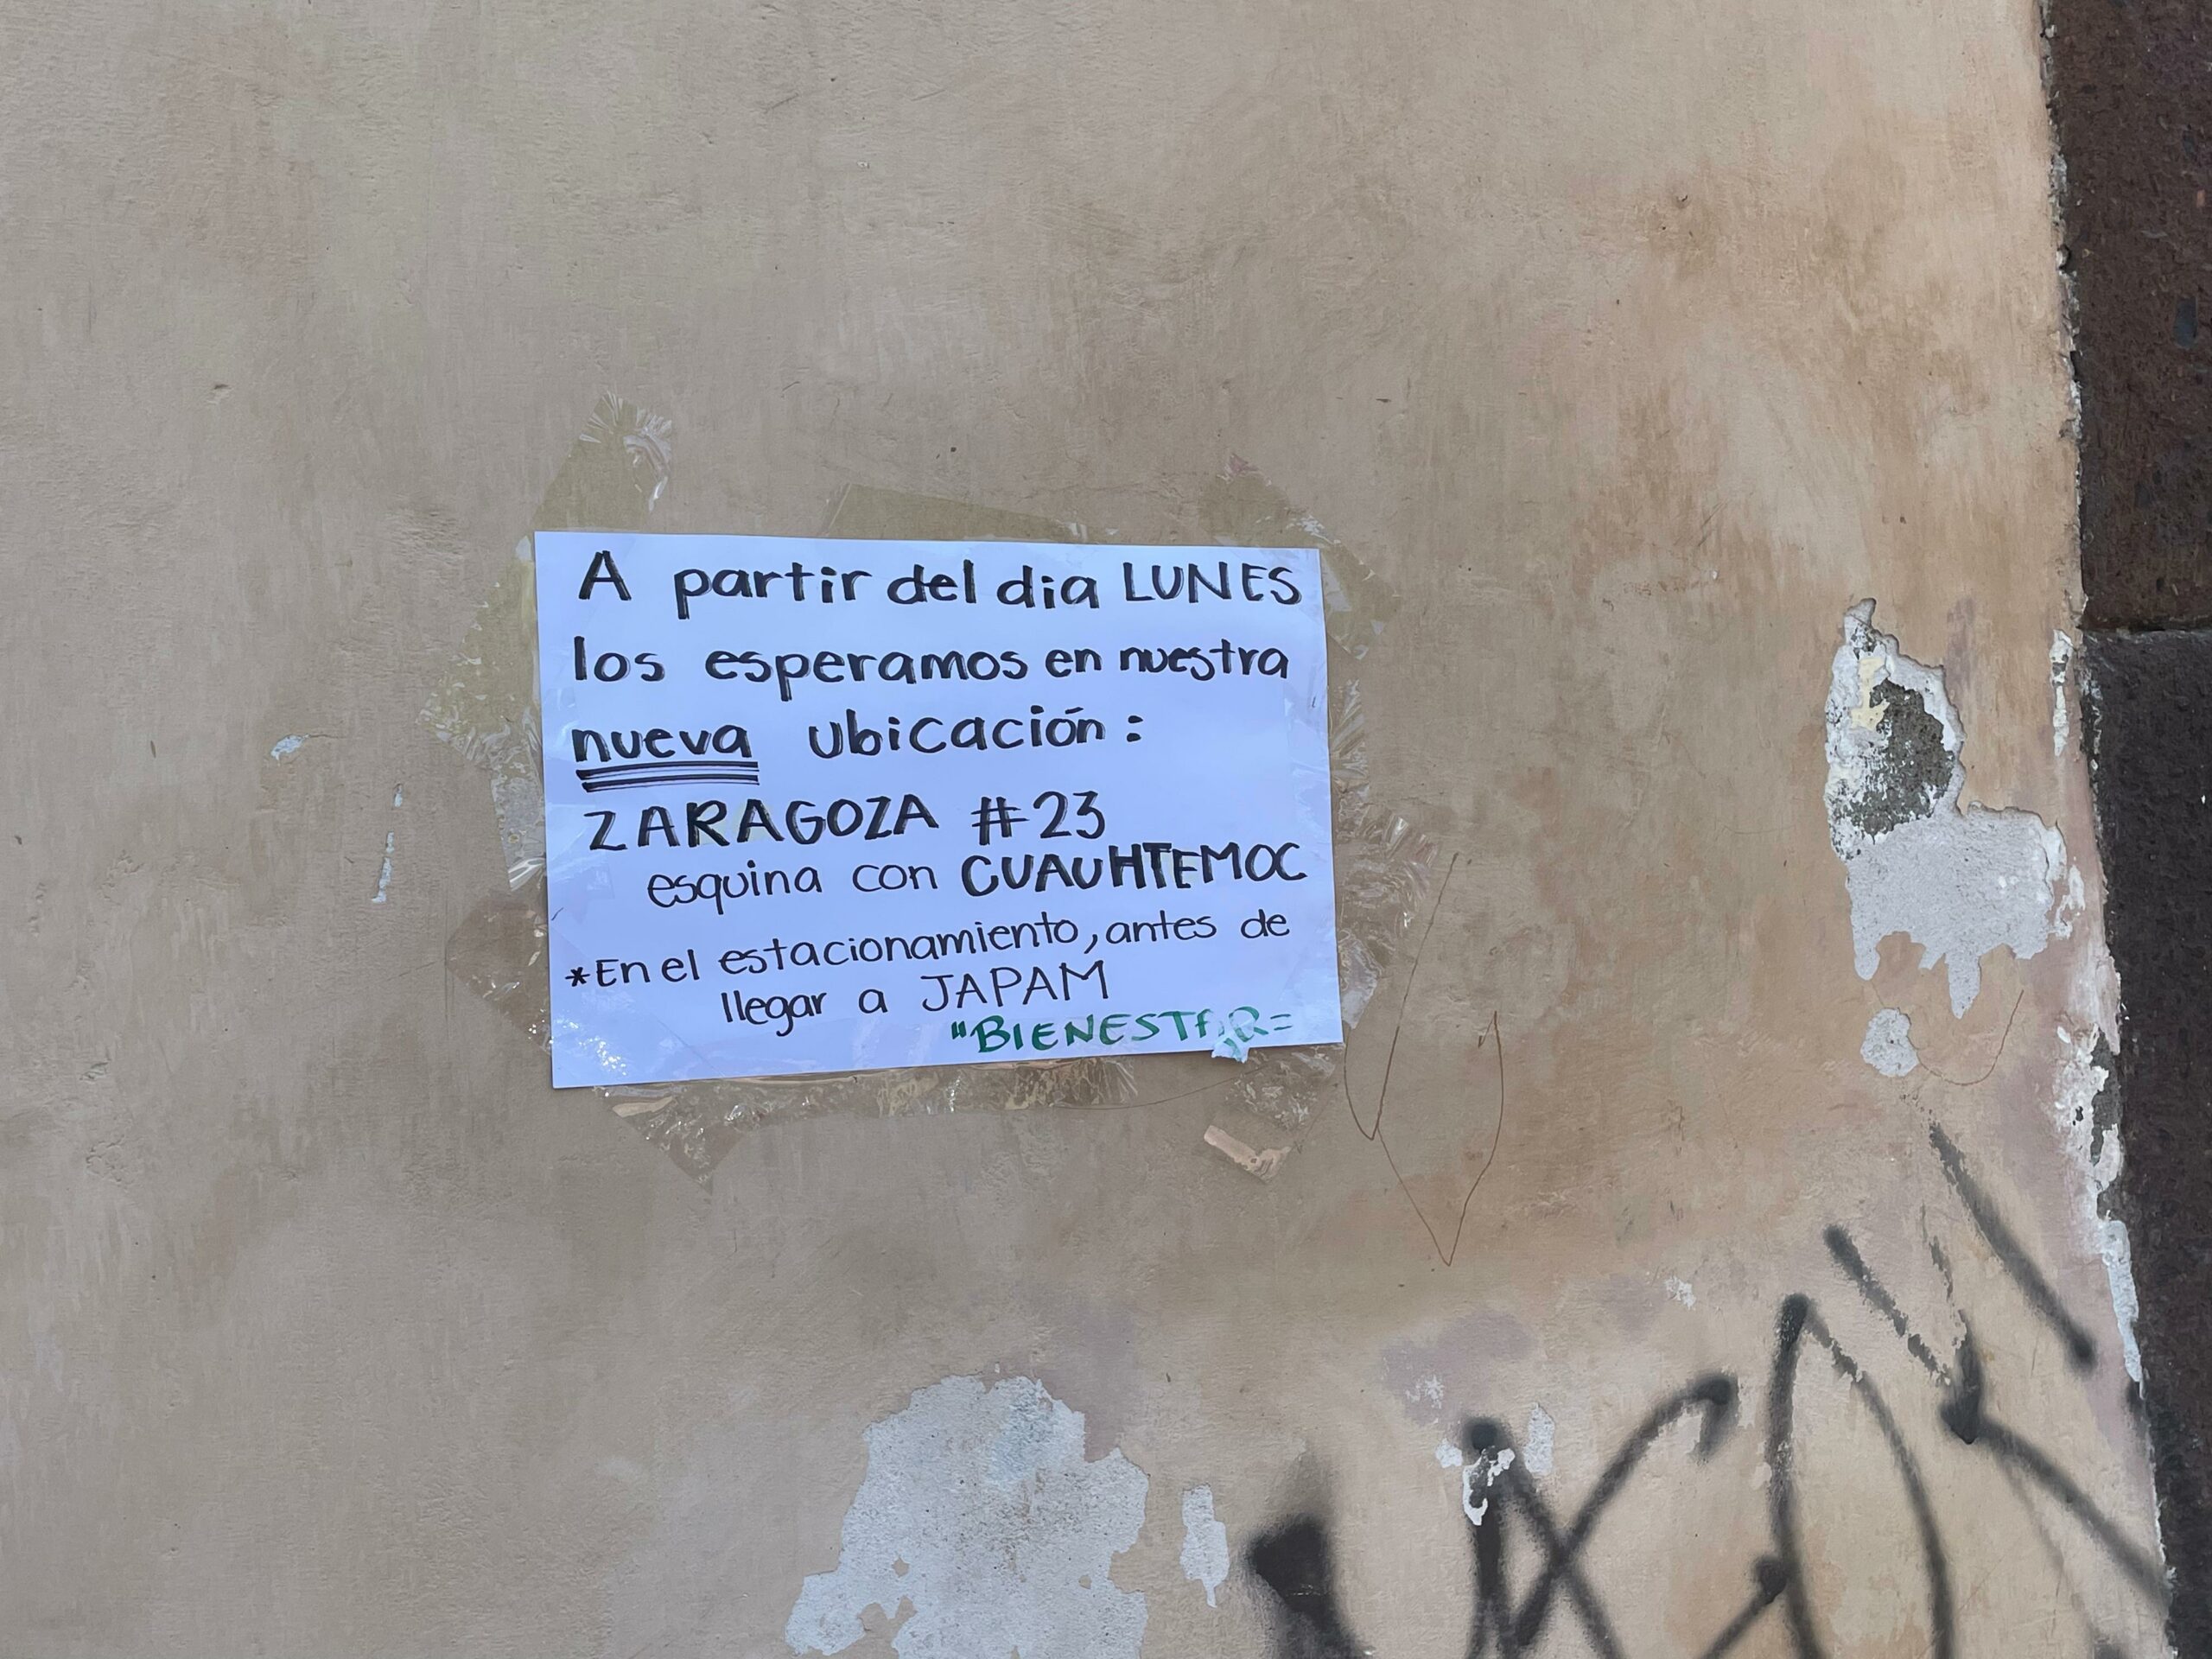 A partir del dia LUNES
los esperamos en nuestra
nueva ubicación:
ZARAGOZA #23
esquina con CUAUHTEMOC
*En el estacionamiento, antes de
llegar a JAPAM
"BIENESTAR=